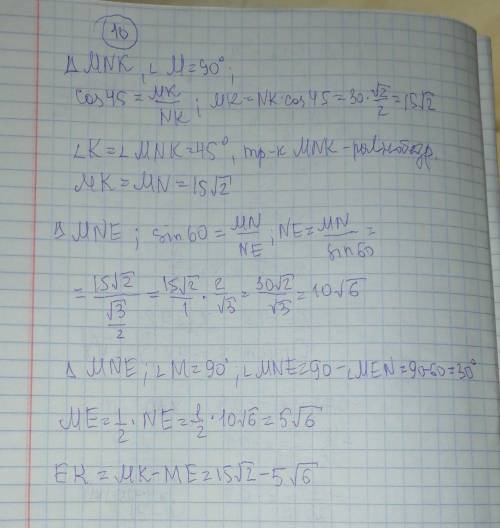 16
Δ MNK, ∠ M=90°;
cos45=MK/NK; MK=NK·cos45=30·√2/2=15√2
∠K=∠MNK=45°, тр-к MNK-равнобедр.
MK=MN=15√2
Δ MNE; sin60=MN/NE; NE=MN/sin60=
=15√2/(√3/2)=15√2/1·2/√3=30√2/√3=10√6
Δ MNE; ∠M=90°, ∠MNE=90-∠MEN=90-60=30°
ME=1/2·NE=1/2·10√6=5√6
EK=MK-ME=15√2-5√6